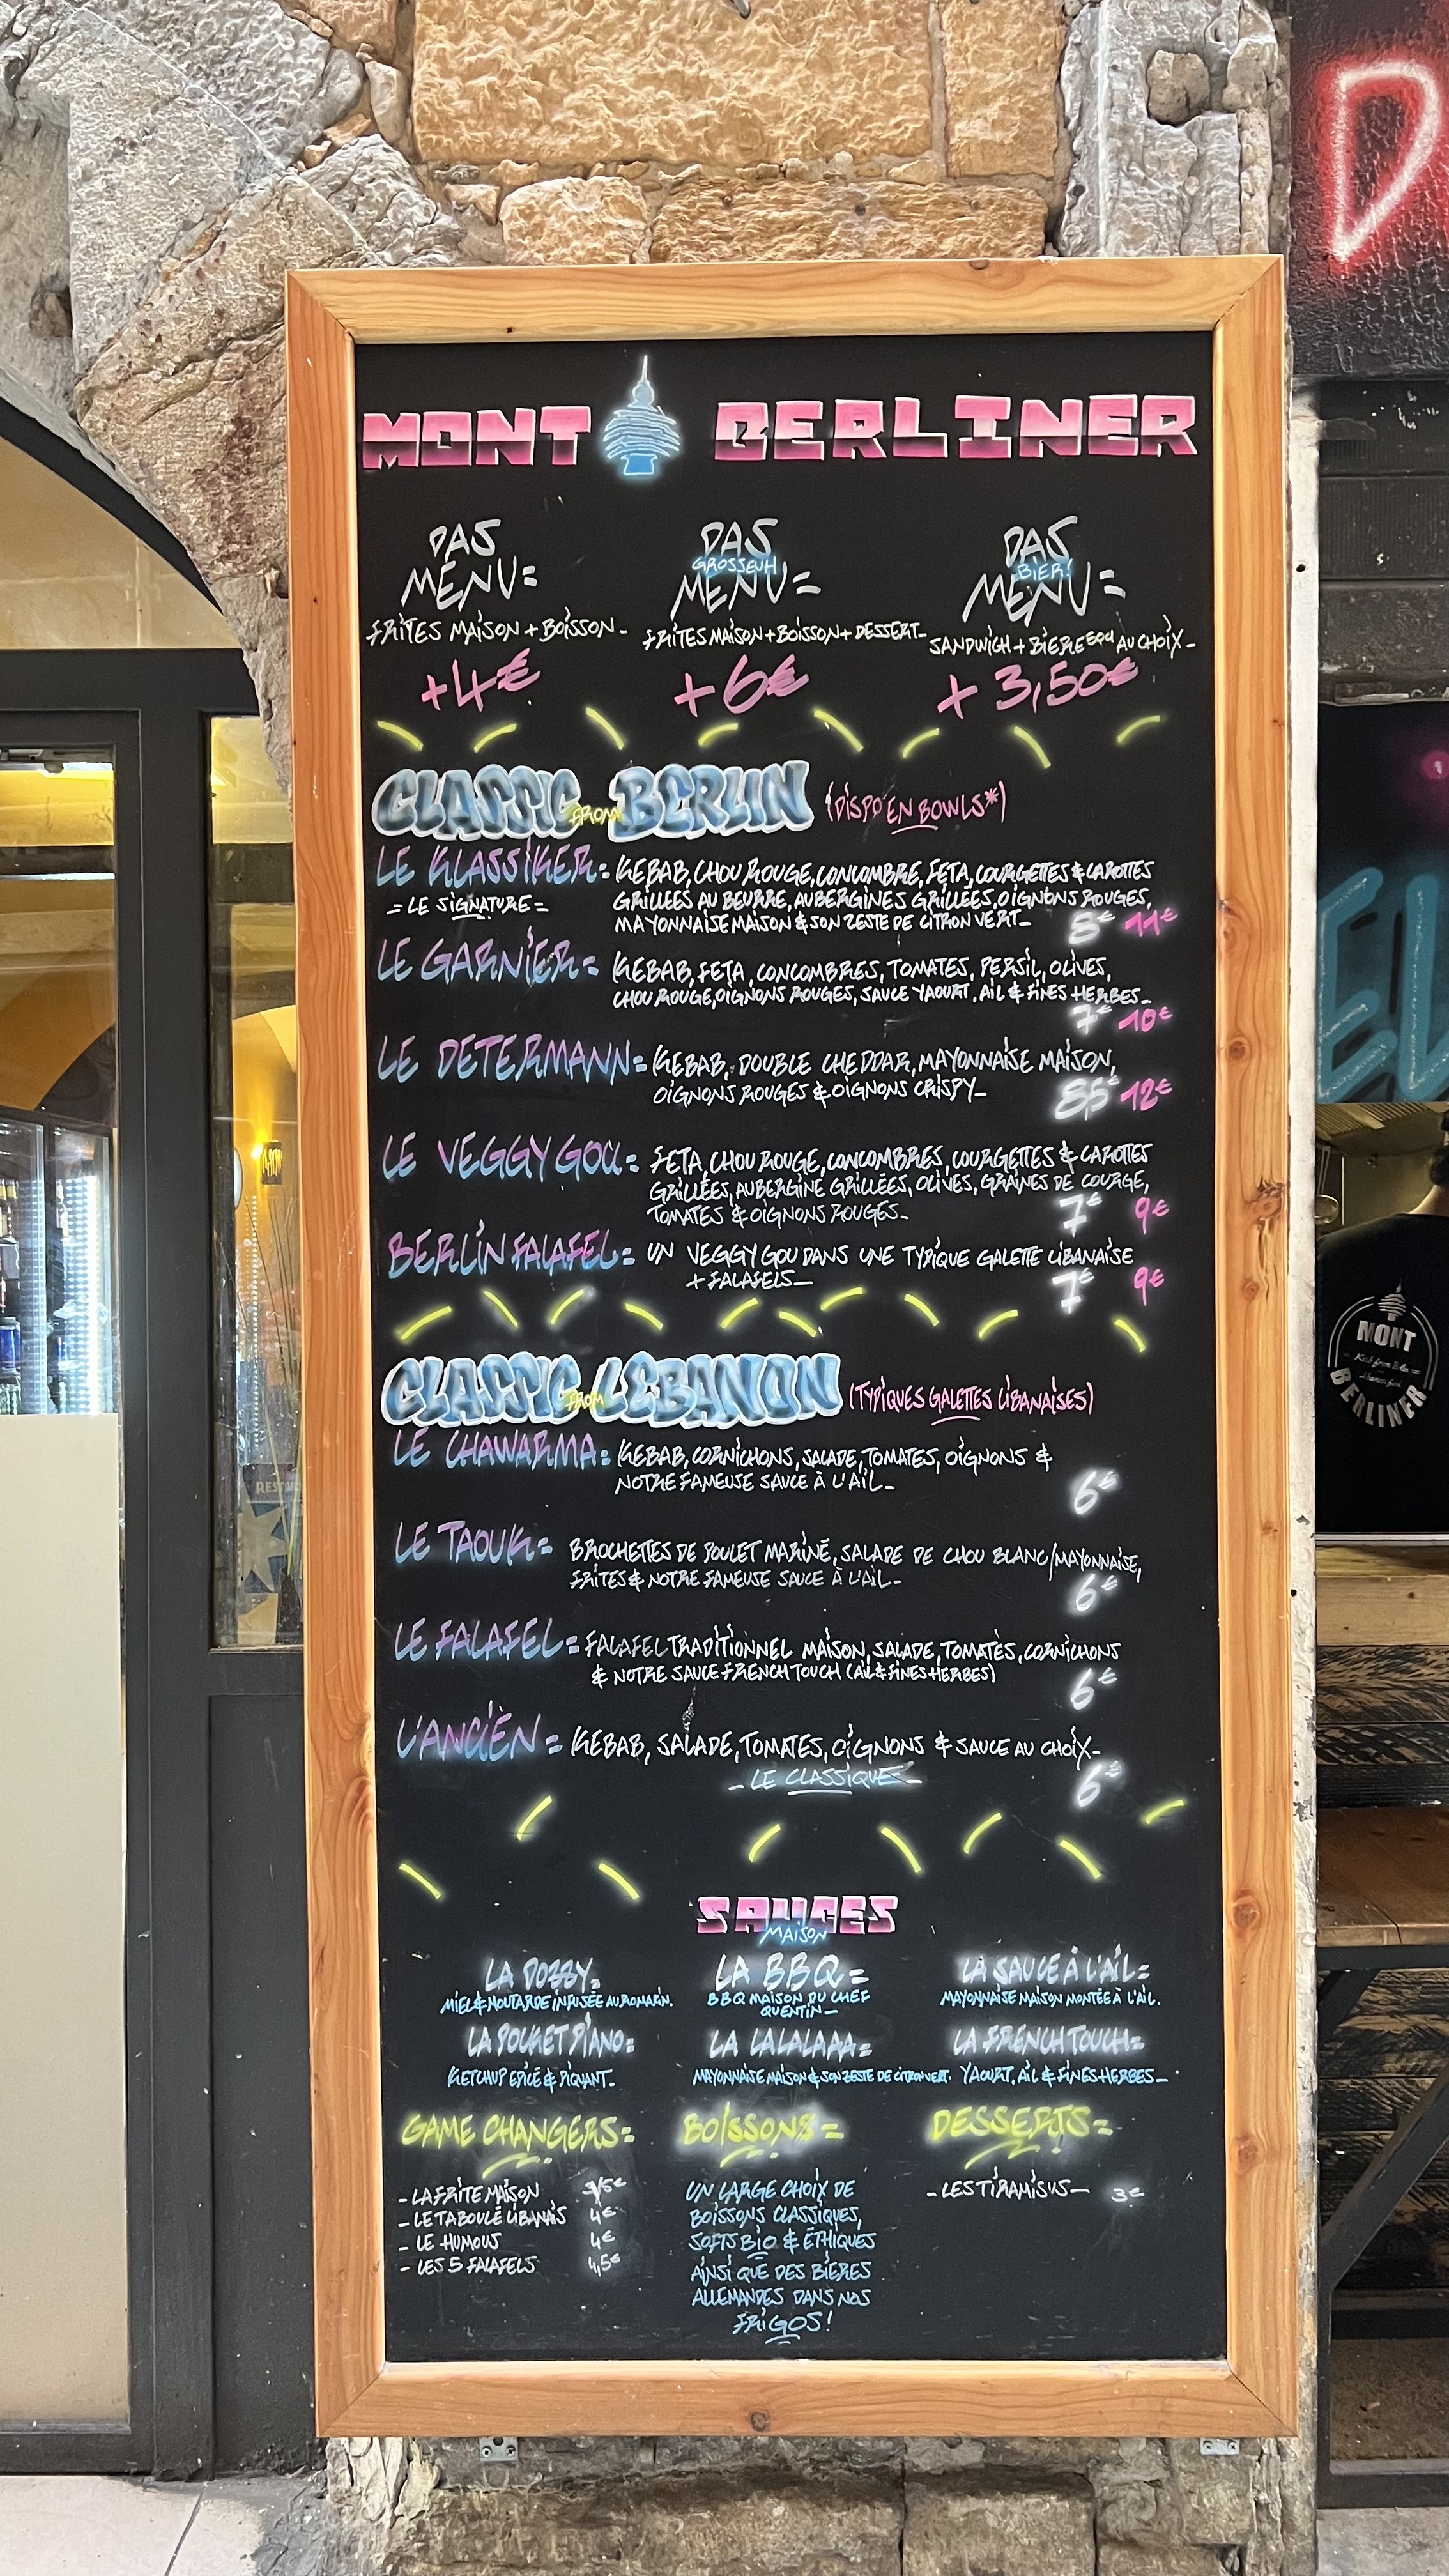 MONT BERLINER
DAS
MENU=
FRITES MAISON + BOISSON-
+4€
DAS
GROSSEUH
MENU=
FRITES MAISON+BOISSON+DESSERT-
+6€
DAS
BIER!
MENU=
SANDWICH + BIERE 25CL AU CHOIX-
+3,50€
CLASSIC FROM BERLIN (DISPO EN BOWLS*)
LE KLASSIKER= KEBAB, CHOU ROUGE, CONCOMBRE, FETA, COURGETTES & CAROTTES
=LE SIGNATURE= GRILLÉES AU BEURRE, AUBERGINES GRILLÉES, OIGNONS ROUGES,
MAYONNAISE MAISON & SON ZESTE DE CITRON VERT- 8€ 11€
LE GARNIER= KEBAB, FETA, CONCOMBRES, TOMATES, PERSIL, OLIVES,
CHOU ROUGE, OIGNONS ROUGES, SAUCE YAOURT, AIL & FINES HERBES-
7€ 10€
LE DETERMANN= KEBAB, DOUBLE CHEDDAR, MAYONNAISE MAISON,
OIGNONS ROUGES & OIGNONS CRISPY-
8,5€ 12€
LE VEGGY GOU= FETA, CHOU ROUGE, CONCOMBRES, COURGETTES & CAROTTES
GRILLÉES, AUBERGINE GRILLÉES, OLIVES, GRAINES DE COURGE,
TOMATES & OIGNONS ROUGES- 7€ 9€
BERLIN FALAFEL= UN VEGGY GOU DANS UNE TYPIQUE GALETTE LIBANAISE
+ FALAFELS- 7€ 9€
CLASSIC FROM LEBANON (TYPIQUES GALETTES LIBANAISES)
LE CHAWARMA= KEBAB, CORNICHONS, SALADE, TOMATES, OIGNONS &
NOTRE FAMEUSE SAUCE À L'AIL-
6€
LE TAOUK= BROCHETTES DE POULET MARINÉ, SALADE DE CHOU BLANC/MAYONNAISE,
FRITES & NOTRE FAMEUSE SAUCE À L'AIL-
6€
LE FALAFEL= FALAFEL TRADITIONNEL MAISON, SALADE, TOMATES, CORNICHONS
& NOTRE SAUCE FRENCH TOUCH (AIL & FINES HERBES)
6€
L'ANCIEN= KEBAB, SALADE, TOMATES, OIGNONS & SAUCE AU CHOIX-
- LE CLASSIQUE -
6€
SAUCES
MAISON
LA POZZY=
MIEL & MOUTARDE INFUSÉE AU ROMARIN.
LA BBQ=
BBQ MAISON DU CHEF
QUENTIN-
LA SAUCE À L'AIL=
MAYONNAISE MAISON MONTÉE À L'AIL.
LA POUKET PIANO=
KETCHUP EPICÉ & PIQUANT-
LA LALALAAA=
MAYONNAISE MAISON & SON ZESTE DE CITRON VERT.
LA FRENCH TOUCH=
YAOURT, AIL & FINES HERBES-
GAME CHANGERS=
- LA FRITE MAISON
- LE TABOULÉ LIBANAIS 4€
- LE HUMOUS 4€
- LES 5 FALAFELS 4,5€
BOISSONS=
UN LARGE CHOIX DE
BOISSONS CLASSIQUES,
SOFTS BIO & ÉTHIQUES
AINSI QUE DES BIÈRES
ALLEMANDES DANS NOS
FRIGOS!
DESSERTS=
- LES TIRAMISUS- 3€
MONT
BERLINER